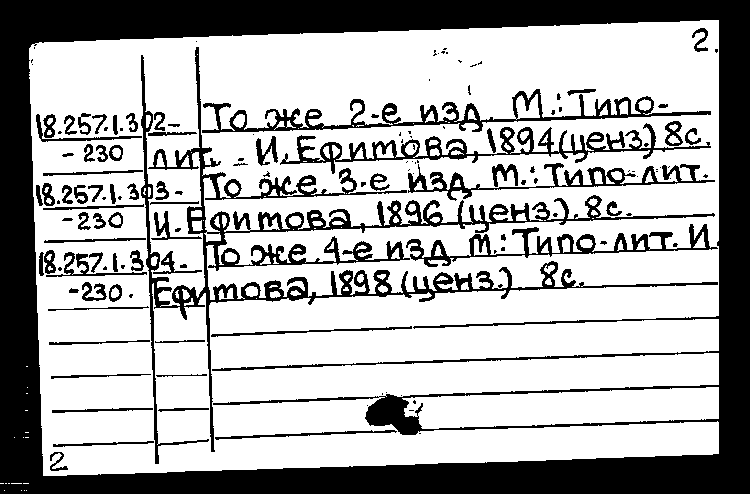 2.
18.257.1.302- То же 2-е изд. М.: Типо-
-230 лит. - И. Ефитова, 1894 (ценз.) 8с.
18.257.1.303- То же. 3-е изд. М.: Типо-лит.
-230 И. Ефитова, 1896 (ценз.). 8с.
18.257.1.304.- То же. 4-е изд. М.: Типо-лит. И.
-230. Ефитова, 1898 (ценз.) 8с.
2